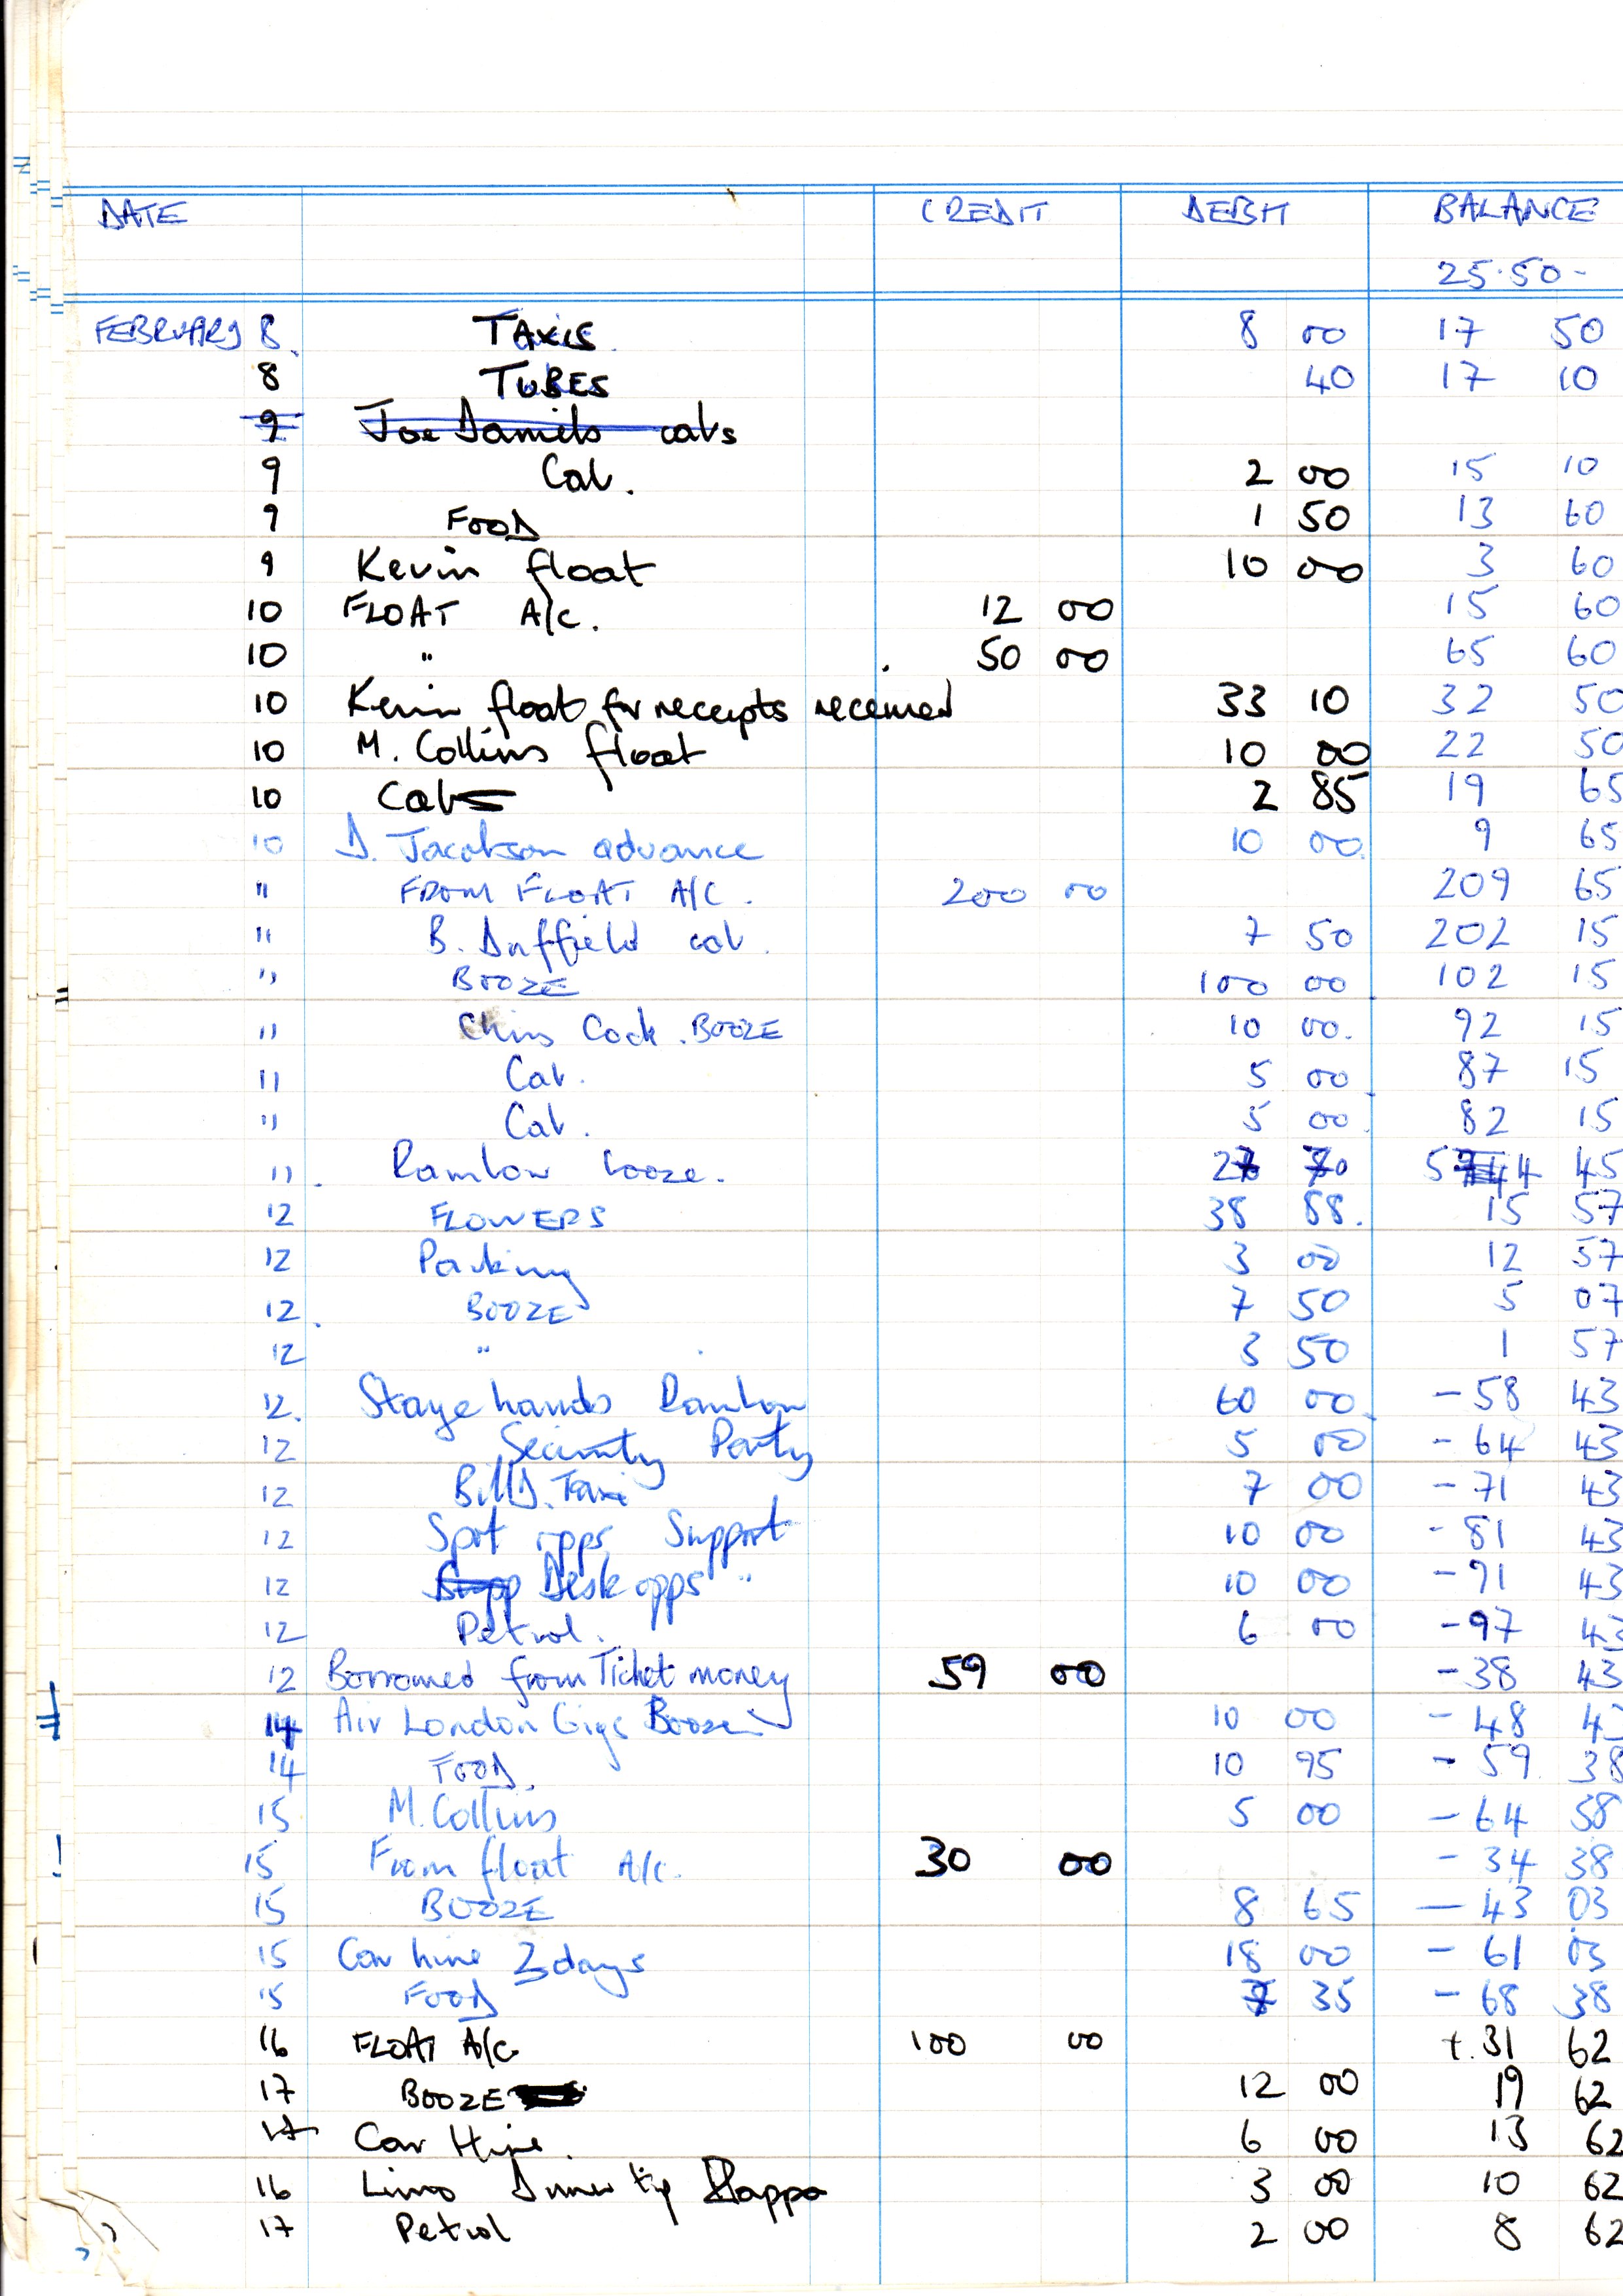 DATE CREDIT DEBIT BALANCE
25.50-
FEBRUARY 8. TAXIS 8 00 17 50
8 TUBES 40 17 10
9 Joe Daniels cabs
9 Cab. 2 00 15 10
9 FOOD 1 50 13 60
9 Kevin float 10 00 3 60
10 FLOAT A/C. 12 00 15 60
10 " 50 00 65 60
10 Kevin float for receipts received 33 10 32 50
10 M. Collins float 10 00 22 50
10 Cabs 2 85 19 65
10 D. Jacobson advance 10 00. 9 65
" FROM FLOAT A/C. 200 00 209 65
" B. Duffield cab. 7 50 202 15
" BOOZE 100 00 102 15
11 Chris Cook. BOOZE 10 00. 92 15
11 Cab. 5 00 87 15
" Cab. 5 00 82 15
11. Rainbow booze. 27 70 54 45
12 FLOWERS 38 88. 15 57
12 Parking 3 00 12 57
12. BOOZE 7 50 5 07
12 " 3 50 1 57
12. Stage hands Rainbow 60 00. - 58 43
12 Security Party 5 00 - 64 43
12 Bill D. Taxi 7 00 - 71 43
12 Spot opps Support 10 00 - 81 43
12 Desk opps " 10 00 - 91 43
12 Petrol. 6 00 - 97 43
12 Borrowed from Ticket money 59 00 - 38 43
14 Air London Gigs Booze 10 00 - 48 43
14 FOOD. 10 95 - 59 38
15 M. Collins 5 00 - 64 38
! 15 From float A/C. 30 00 - 34 38
15 BOOZE 8 65 - 43 03
15 Car hire 3 days 18 00 - 61 03
15 FOOD 7 35 - 68 38
16 FLOAT A/C 100 00 +. 31 62
17 BOOZE 12 00 19 62
17 Car Hire. 6 00 13 62
16 Limo Driver tip Zappa 3 00 10 62
17 Petrol 2 00 8 62